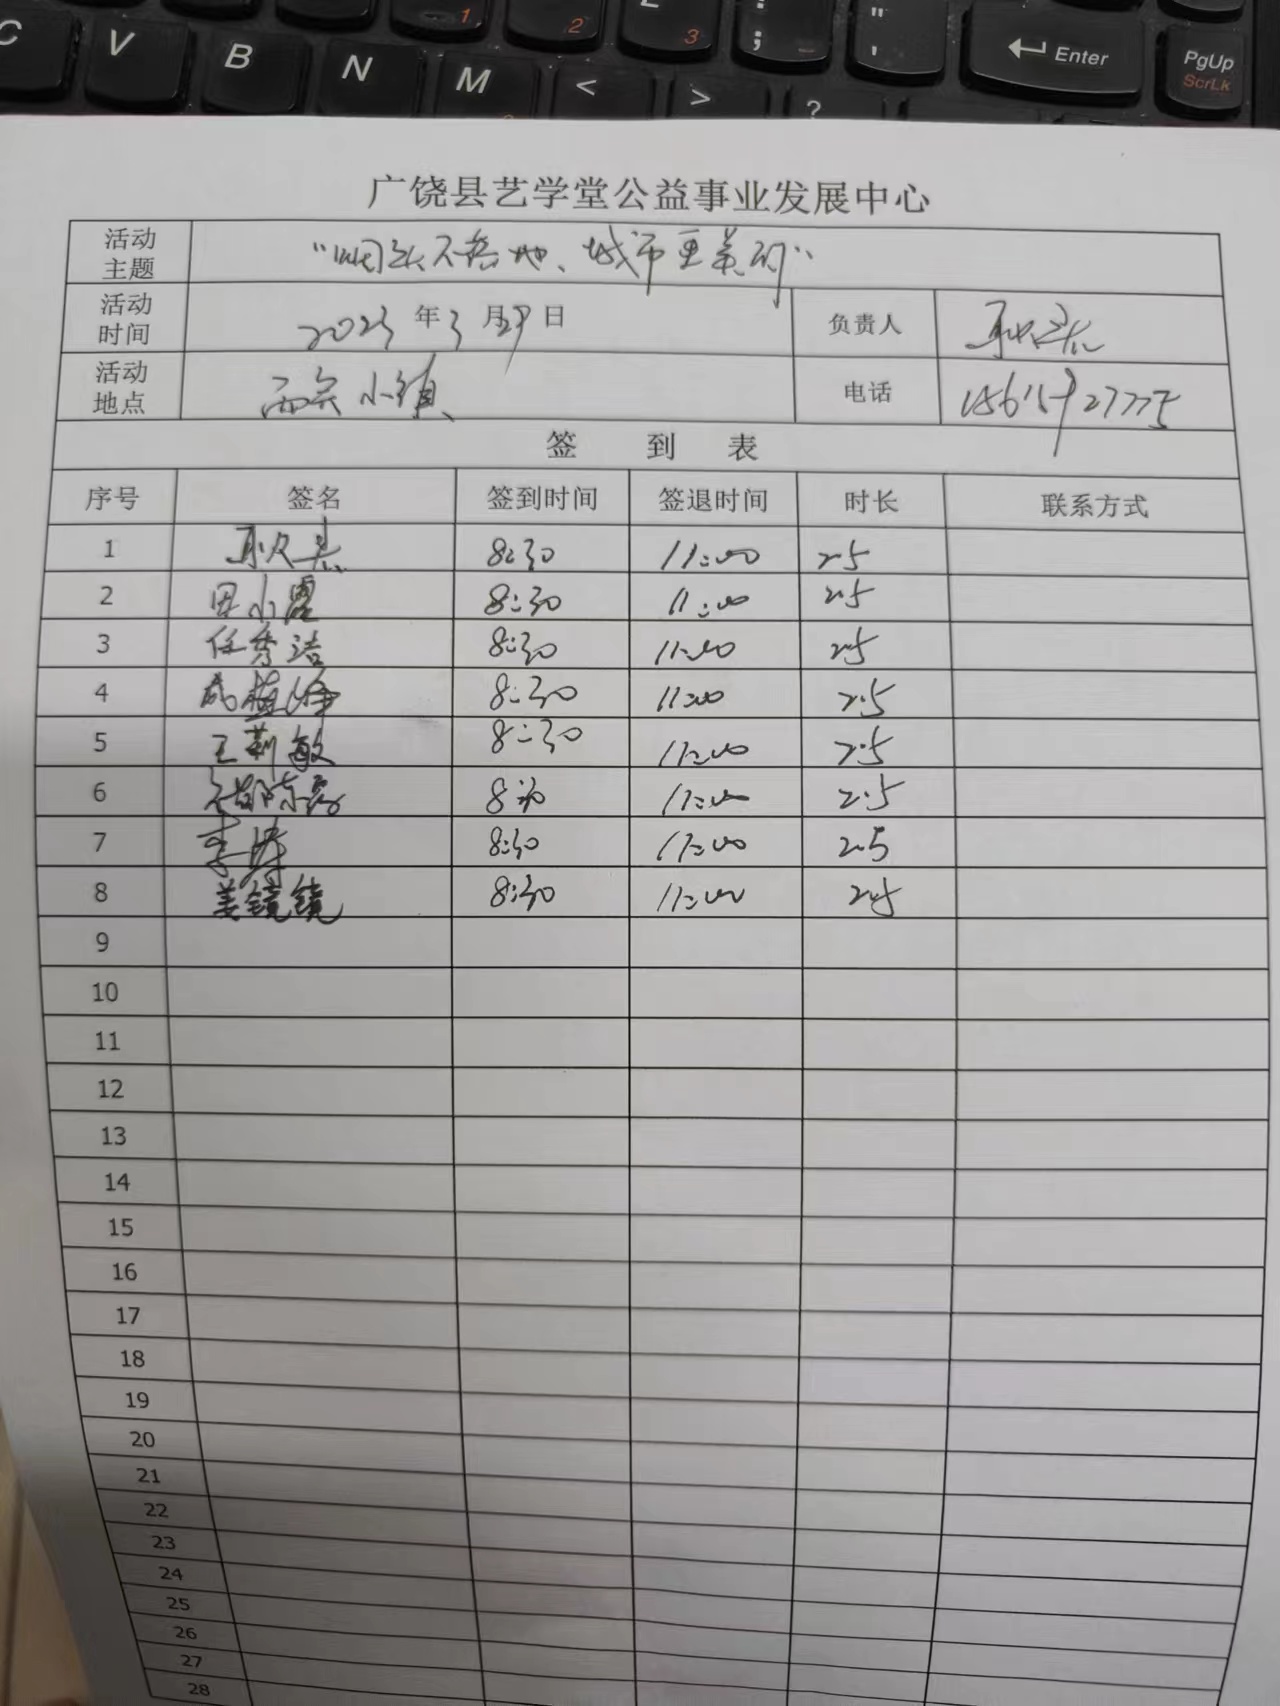 C V B N M < > ? : ; " ' Enter PgUp ScrLk
1 2 3
广饶县艺学堂公益事业发展中心
活动主题 “烟头不落地、城市更美丽”
活动时间 2023年3月 日 负责人
活动地点 西关小镇 电话
签 到 表
序号 签名 签到时间 签退时间 时长 联系方式
1 8:30 11:00 2.5
2 田小霞 8:30 11:00 2.5
3 任秀洁 8:30 11:00 2.5
4 8:30 11:00 2.5
5 王莉敏 8:30 11:00 2.5
6 8:30 11:00 2.5
7 李涛 8:30 11:00 2.5
8 姜镜镜 8:30 11:00 2.5
9
10
11
12
13
14
15
16
17
18
19
20
21
22
23
24
25
26
27
28